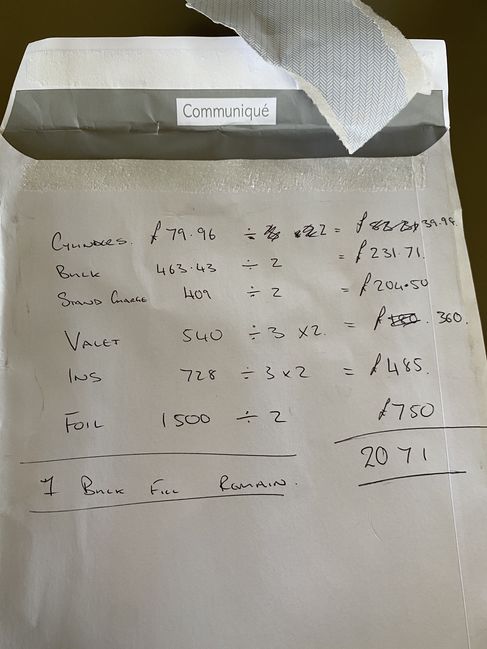 Communiqué
CYLINDERS. £79.96 ÷ 2 = £39.98
BULK 463.43 ÷ 2 = £231.71.
STAND CHARGE 409 ÷ 2 = £204.50
VALET 540 ÷ 3 x 2. = £ 360.
INS 728 ÷ 3 x 2 = £485.
FOIL 1500 ÷ 2 £750
2071
1 BULK FILL REMAIN.